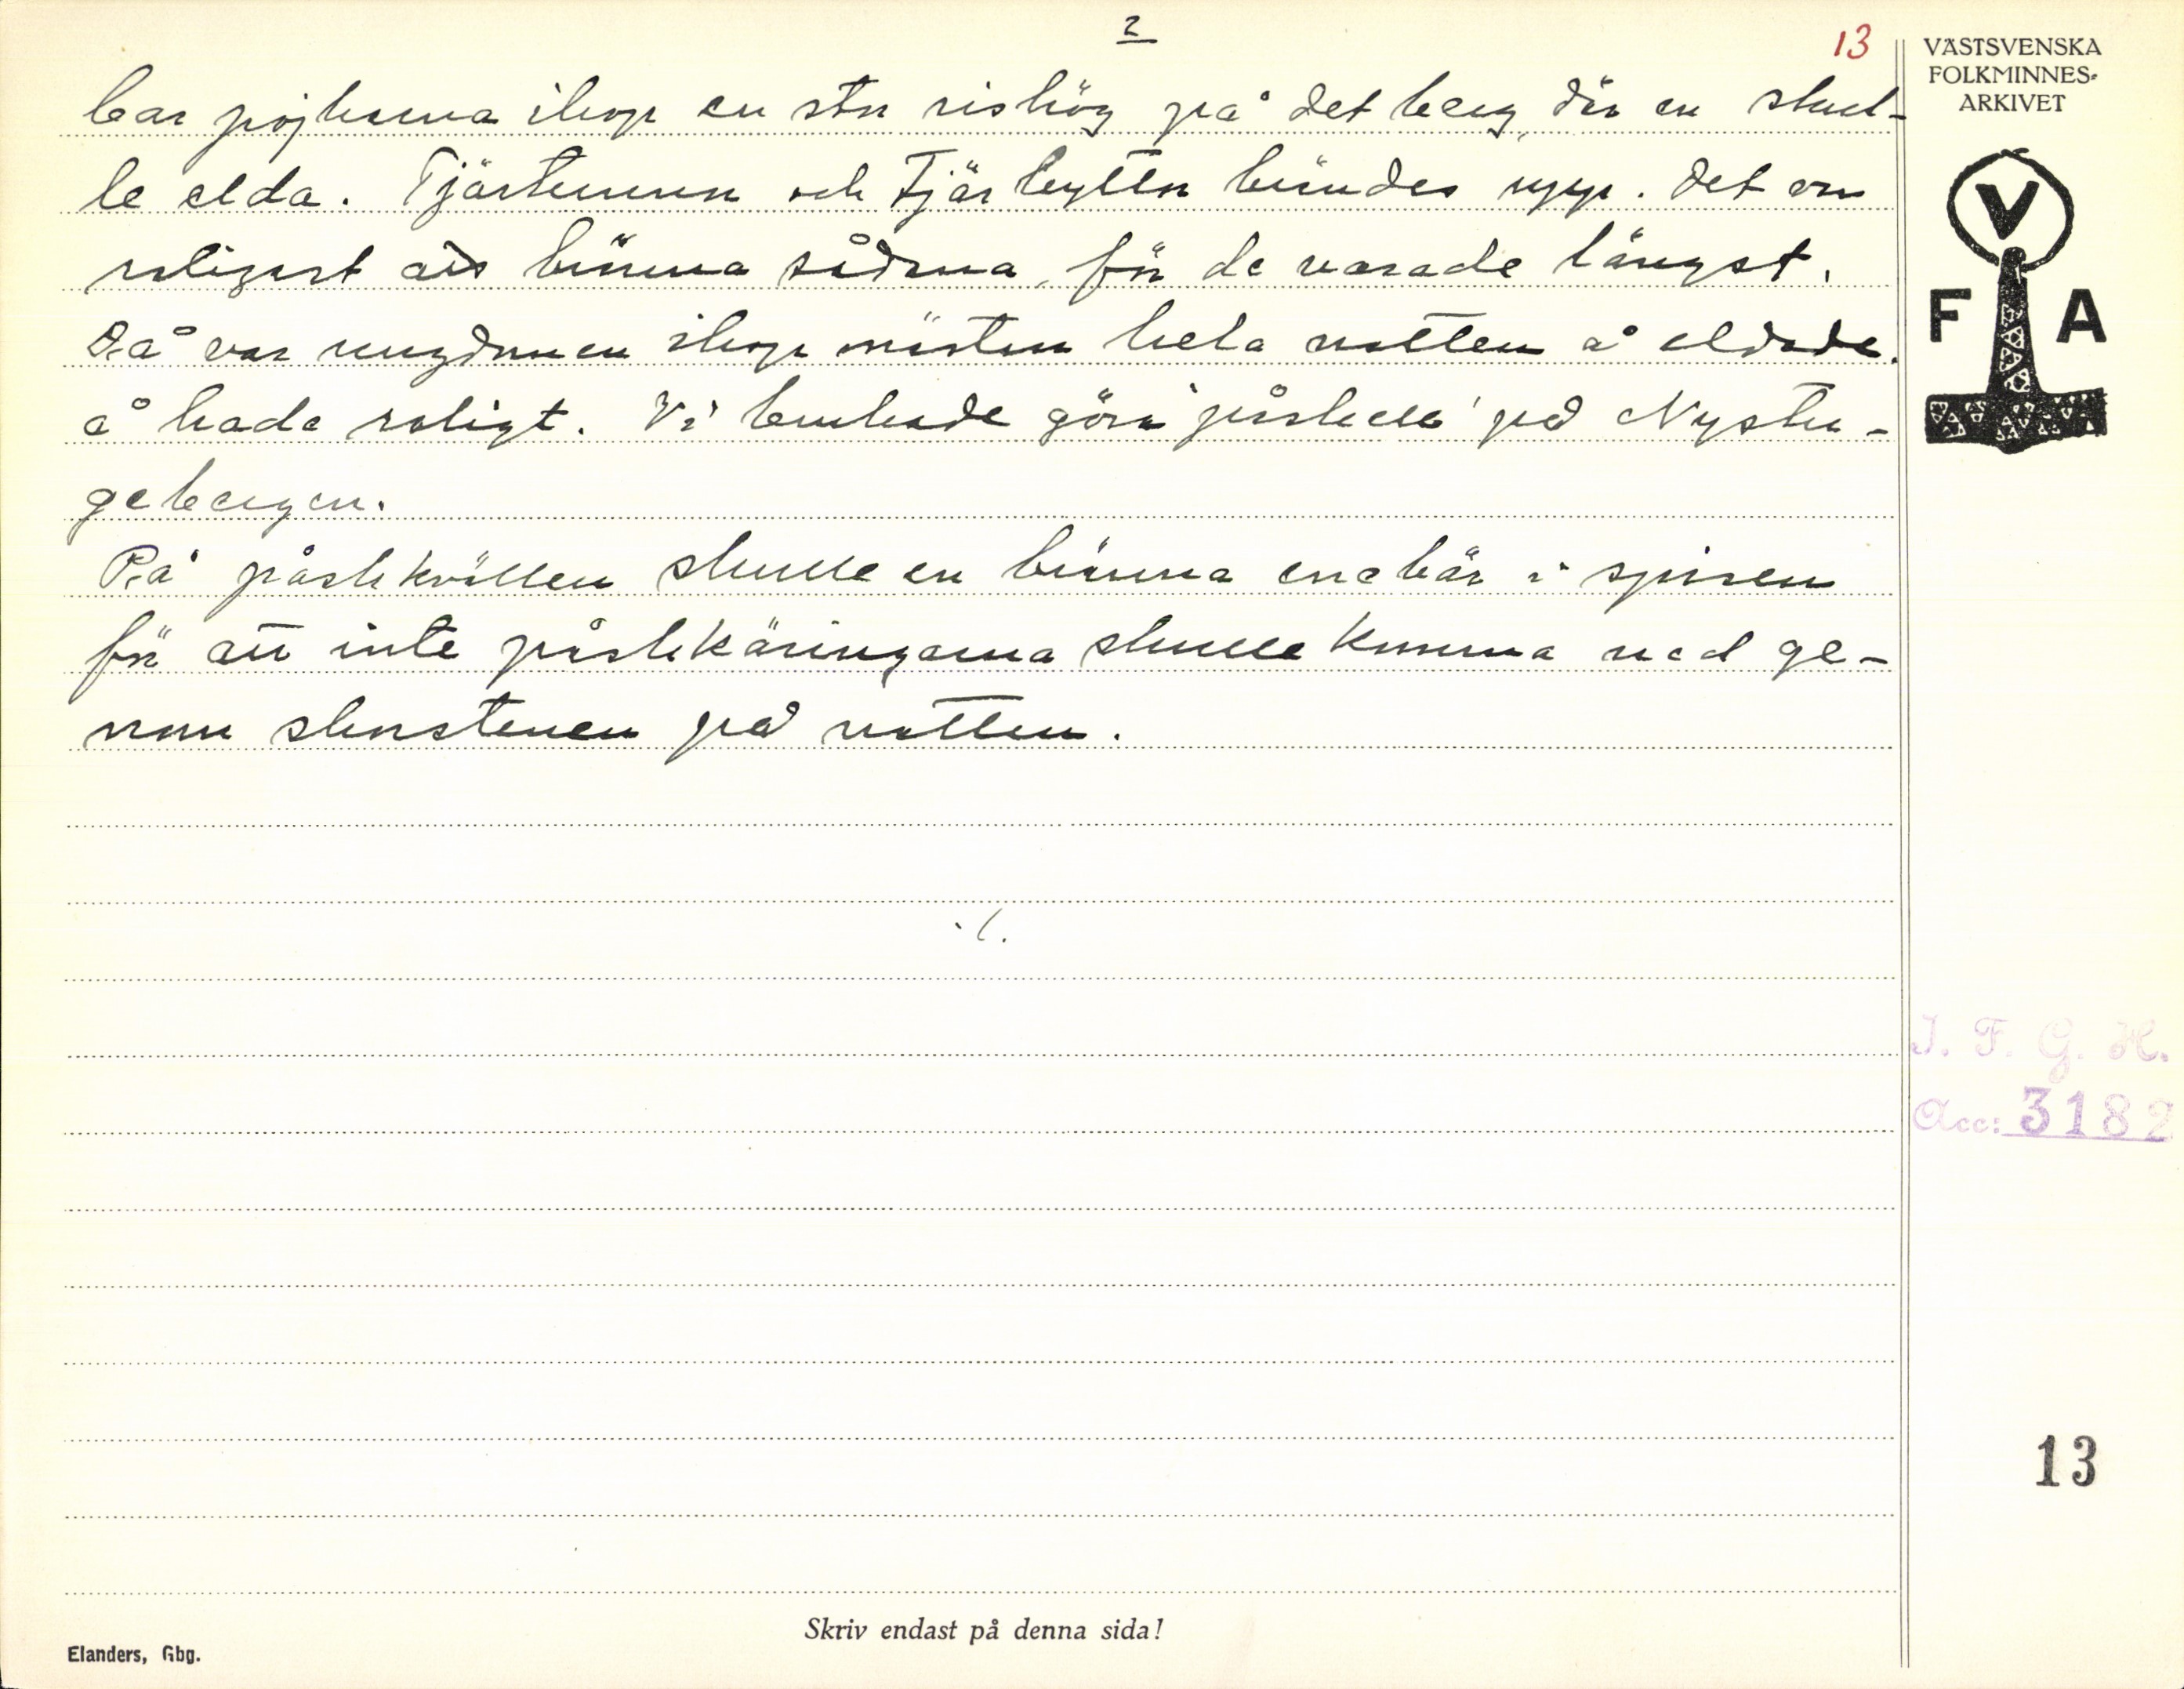 2
13
bar pojkarna ihop en stor rishög på det berg, där en skul-
le elda. Tjärtunnor och Tjärbyttor brändes upp. Det var
roligast att bränna sådana, för de varade längst.
Då var ungdomen ihop nästan hela natten å eldade.
å hade roligt. Vi brukade göra påskeld på Nystu-
gebergen.
På påskkvällen skulle en bränna enebär i spisen
för att inte påskkäringarna skulle komma ned ge-
nom skorstenen på natten.
./.
Skriv endast på denna sida!
Elanders, Gbg.
VÄSTSVENSKA
FOLKMINNES-
ARKIVET
V
F A
I. F. G. H.
Acc: 3182
13